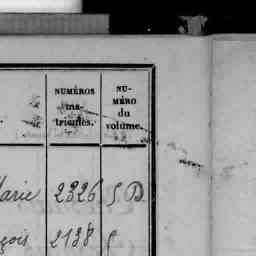 NUMÉROS
ma-
tricules.
NU-
MÉRO
du
volume.
Marie 2326 5 D
çois 2138 5